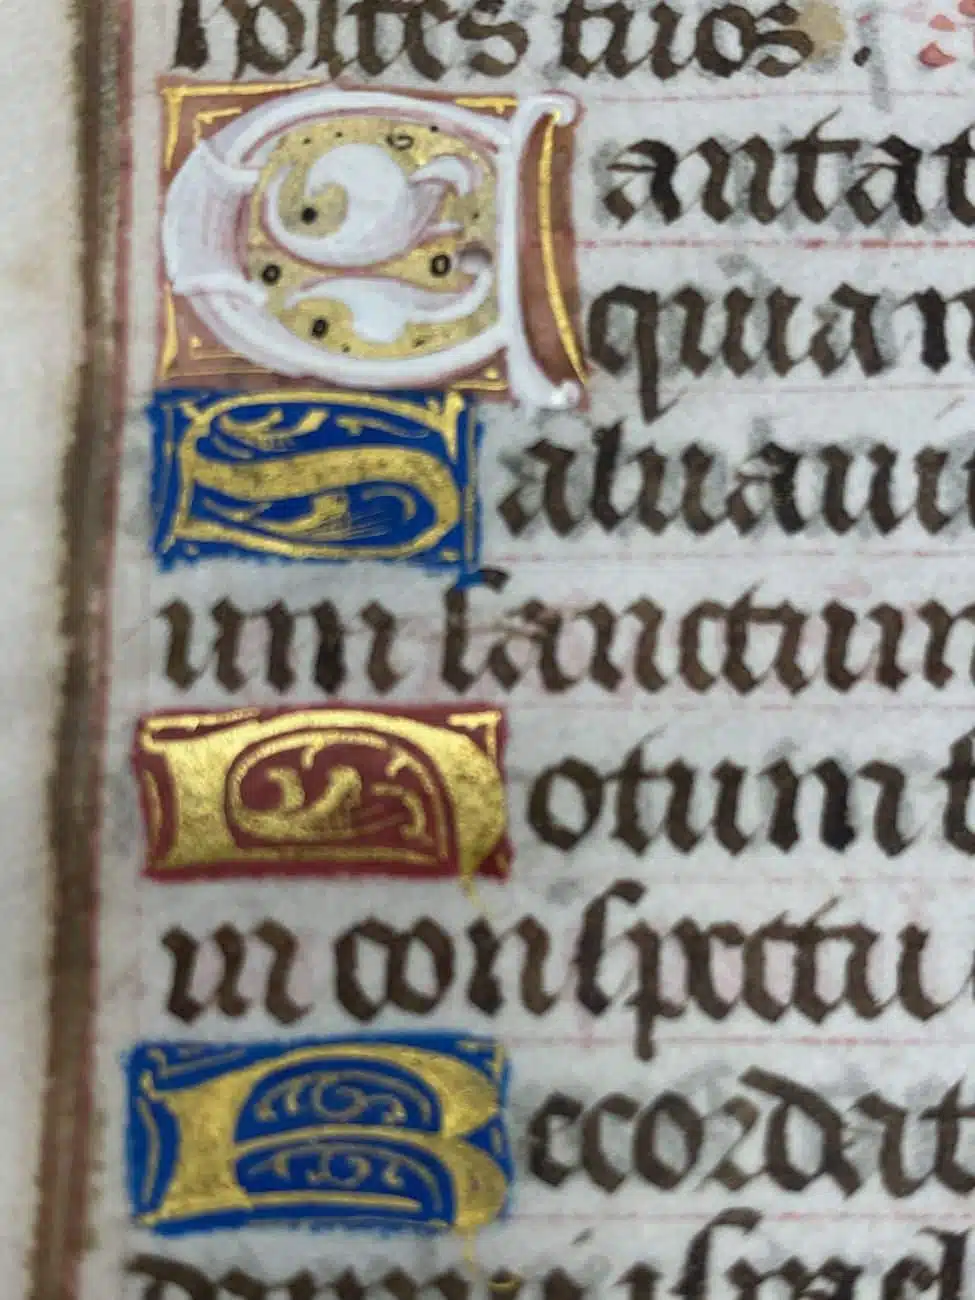 hostes tuos.
Cantat
quia m
Saluaui
um sanctum
Notum f
in conspectu
Recordat
domui israel